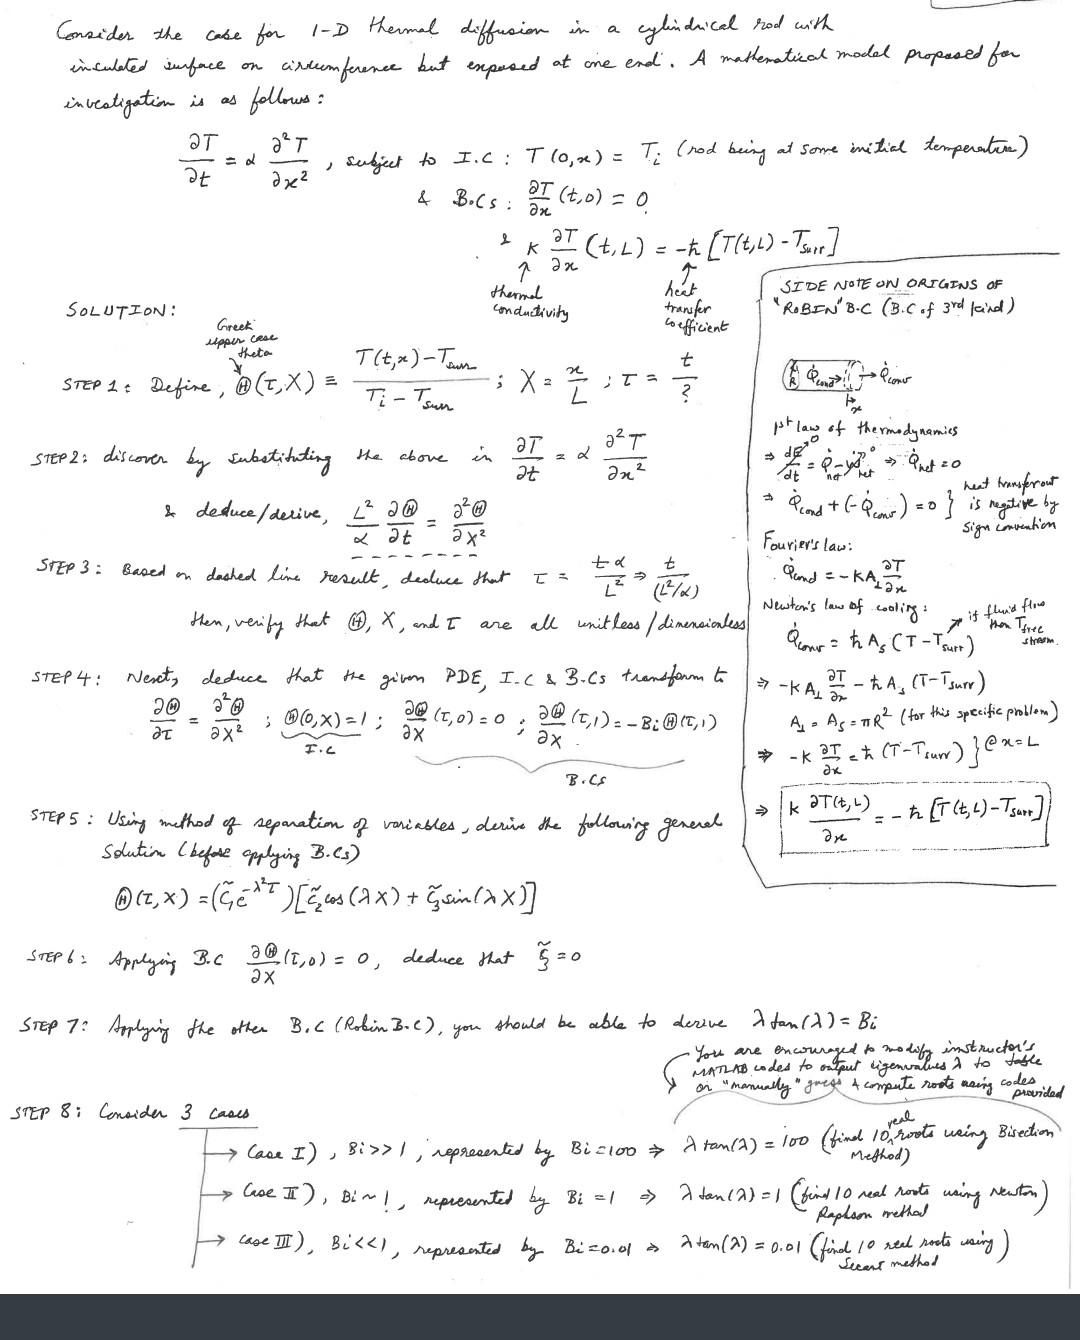 Consider the case for 1-D thermal diffusion in a cylindrical rod with
insulated surface on circumference but exposed at one end. A mathematical model proposed for
investigation is as follows:
∂T/∂t = α ∂²T/∂x² , subject to I.C : T(0,x) = Ti (rod being at some initial temperature)
& B.Cs : ∂T/∂x (t,0) = 0
& k ∂T/∂x (t,L) = -ħ [T(t,L) - Tsurr]
thermal conductivity
heat transfer coefficient
SOLUTION:
Greek upper case theta
STEP 1: Define, Θ(τ,X) ≡ (T(t,x) - Tsurr)/(Ti - Tsurr) ; X = x/L ; τ = t/?
STEP 2: discover by substituting the above in ∂T/∂t = α ∂²T/∂x²
& deduce/derive, L²/α ∂Θ/∂t = ∂²Θ/∂X²
STEP 3: Based on dashed line result, deduce that τ = tα/L² ⇒ t/(L²/α)
then, verify that Θ, X, and τ are all unitless/dimensionless
STEP 4: Next, deduce that the given PDE, I.C & B.Cs transform to
∂Θ/∂τ = ∂²Θ/∂X² ; Θ(0,X) = 1 ; ∂Θ/∂X (τ,0) = 0 ; ∂Θ/∂X (τ,1) = -Bi Θ(τ,1)
I.C
B.Cs
STEP 5: Using method of separation of variables, derive the following general
solution (before applying B.Cs)
Θ(τ,X) = (C̃₁ e^(-λ²τ)) [C̃₂ cos(λX) + C̃₃ sin(λX)]
STEP 6: Applying B.C ∂Θ/∂X (τ,0) = 0, deduce that C̃₃ = 0
STEP 7: Applying the other B.C (Robin B.C), you should be able to derive λ tan(λ) = Bi
You are encouraged to modify instructor's
MATLAB codes to output eigenvalues λ to table
or "manually" guess & compute roots using codes
provided
STEP 8: Consider 3 cases
→ Case I), Bi >> 1, represented by Bi = 100 ⇒ λ tan(λ) = 100 (find 10 real roots using Bisection
Method)
→ Case II), Bi ~ 1, represented by Bi = 1 ⇒ λ tan(λ) = 1 (find 10 real roots using Newton
Raphson method)
→ Case III), Bi << 1, represented by Bi = 0.01 ⇒ λ tan(λ) = 0.01 (find 10 real roots using
Secant method)
SIDE NOTE ON ORIGINS OF
"ROBIN" B.C (B.C of 3rd kind)
R Q̇cond → → Q̇conv
x
1st law of thermodynamics
⇒ dE/dt = Q̇net - Ẇnet ⇒ Q̇net = 0
0 0
⇒ Q̇cond + (-Q̇conv) = 0 } heat transfer out
is negative by
sign convention
Fourier's law:
Q̇cond = -kA⊥ ∂T/∂x
Newton's law of cooling:
Q̇conv = ħ As (T - Tsurr)
if fluid flow
then Tfree
stream.
⇒ -kA⊥ ∂T/∂x - ħ As (T - Tsurr)
A⊥ = As = πR² (for this specific problem)
⇒ -k ∂T/∂x = ħ (T - Tsurr) } @ x = L
⇒ k ∂T(t,L)/∂x = -ħ [T(t,L) - Tsurr]